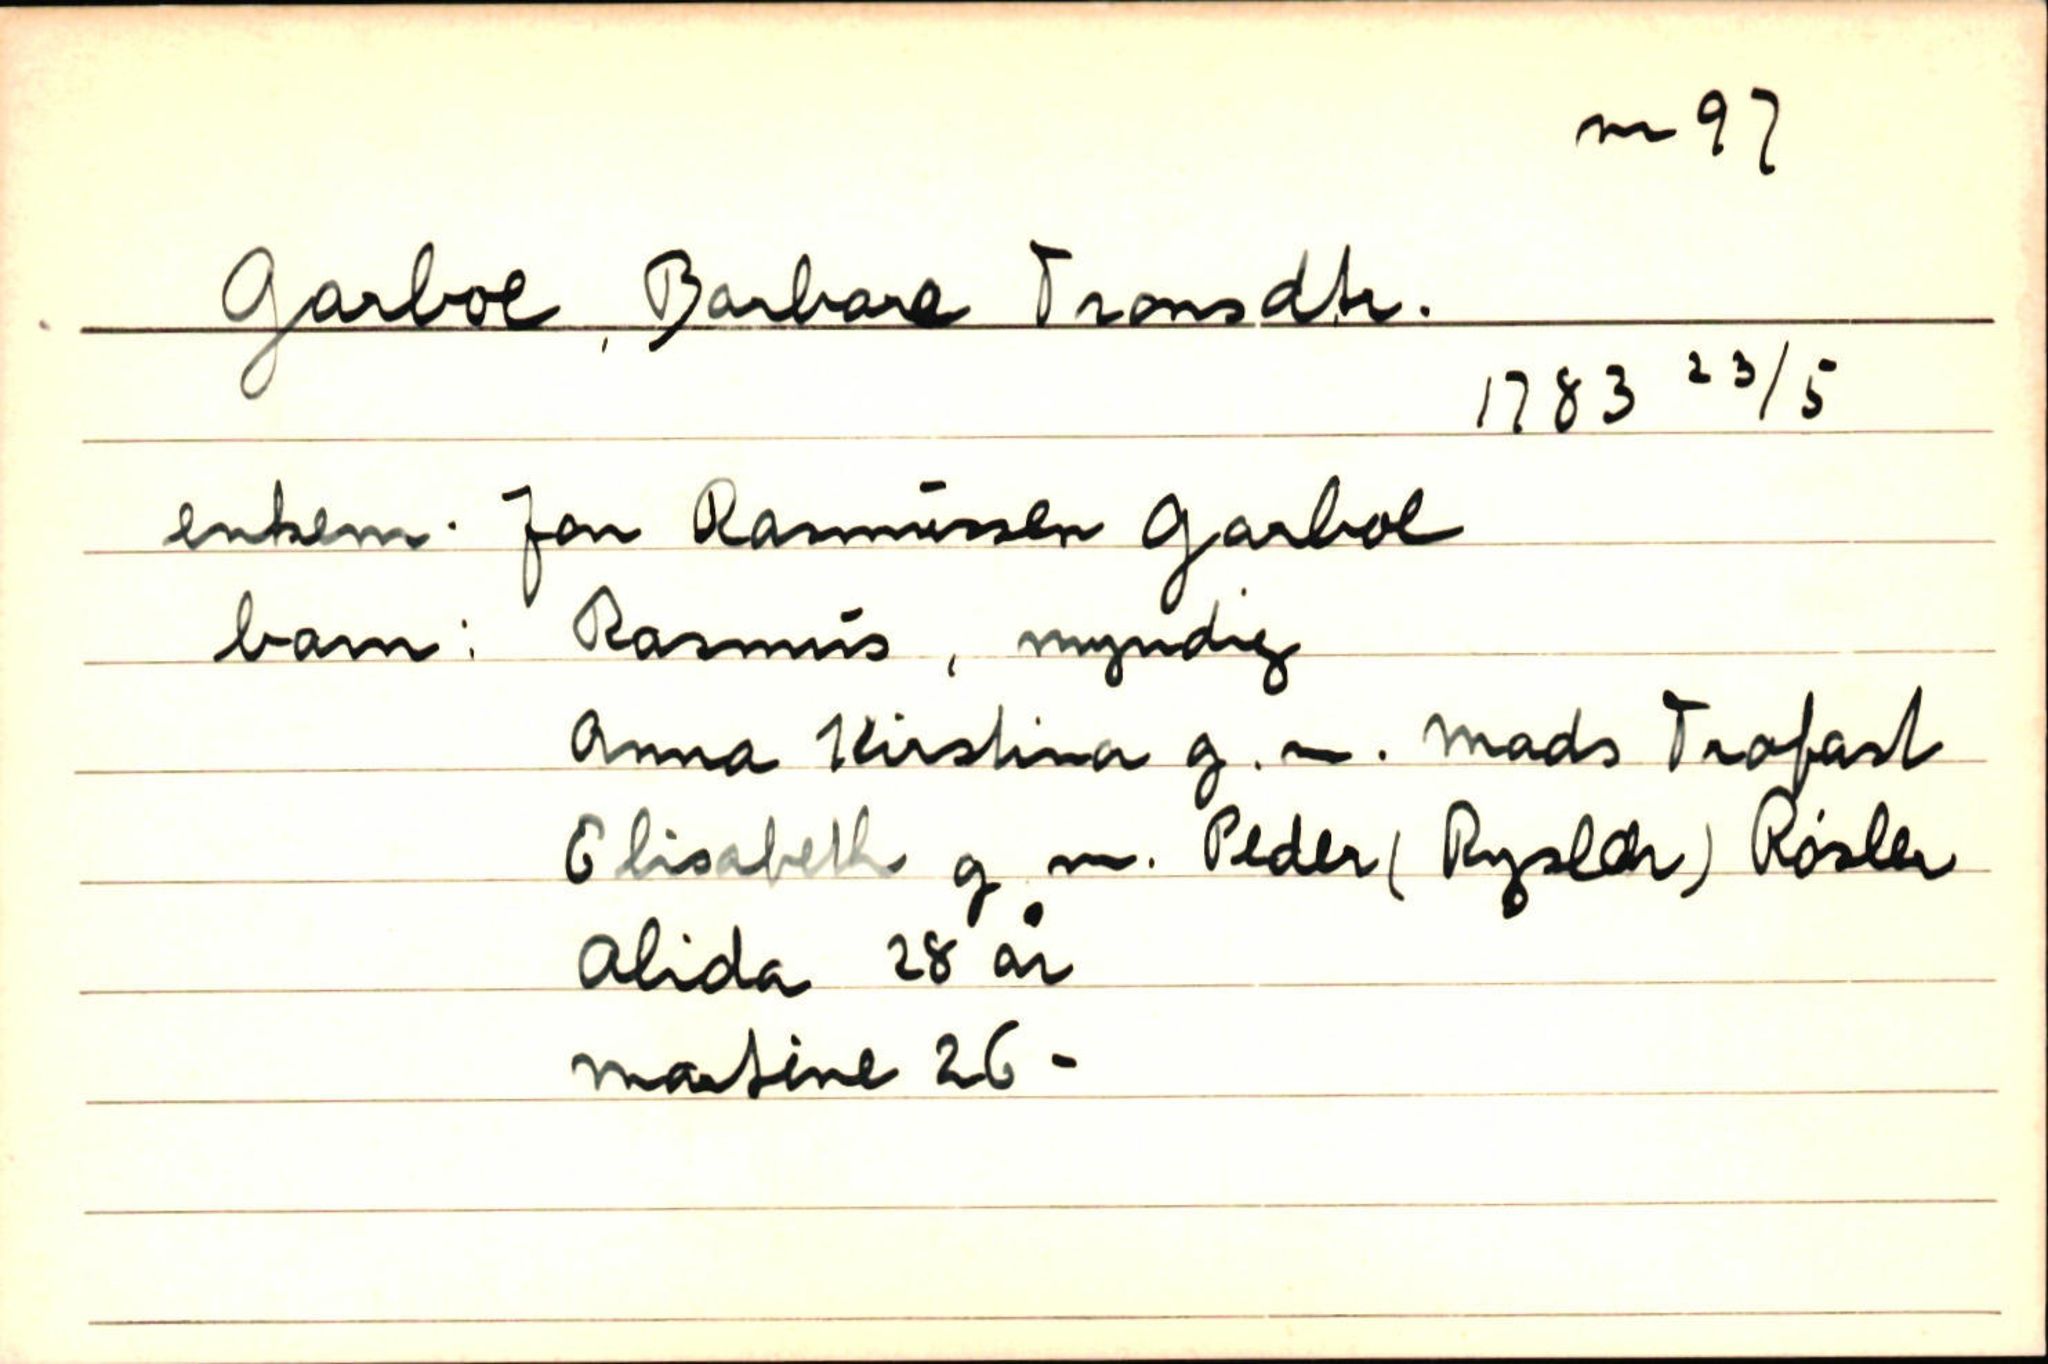 nr 97
Garboe, Barbara Tronsdtr.
1783 23/5
enkem. Jon Rasmussen Garboe
barn: Rasmus, myndig
Anna Kirstina g. m. Mads Trofast
Elisabeth g m. Peder (Ryslær) Røsler
Alida 28 år
Martine 26 -